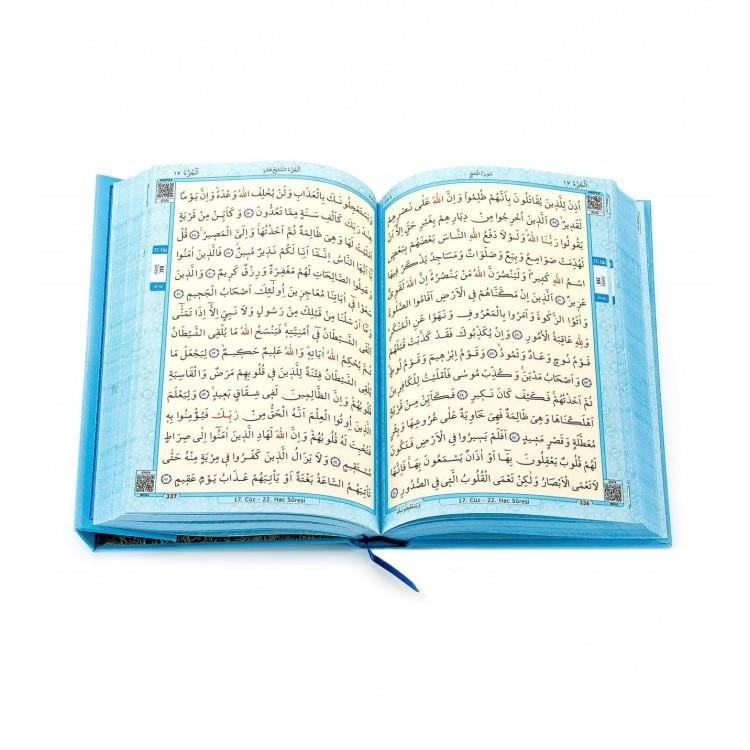 اَلْجُزْءُ ١٧
سُورَةُ الْحَجِّ
اُذِنَ لِلَّذٖينَ يُقَاتَلُونَ بِاَنَّهُمْ ظُلِمُوا وَاِنَّ اللّٰهَ عَلٰى نَصْرِهِمْ
لَقَدٖيرٌ ۝ اَلَّذٖينَ اُخْرِجُوا مِنْ دِيَارِهِمْ بِغَيْرِ حَقٍّ اِلَّٓا اَنْ
يَقُولُوا رَبُّنَا اللّٰهُ وَلَوْلَا دَفْعُ اللّٰهِ النَّاسَ بَعْضَهُمْ بِبَعْضٍ
لَهُدِّمَتْ صَوَامِعُ وَبِيَعٌ وَصَلَوَاتٌ وَمَسَاجِدُ يُذْكَرُ فٖيهَا
اسْمُ اللّٰهِ كَثٖيرًا وَلَيَنْصُرَنَّ اللّٰهُ مَنْ يَنْصُرُهُ اِنَّ اللّٰهَ لَقَوِىٌّ
عَزٖيزٌ ۝ اَلَّذٖينَ اِنْ مَكَّنَّاهُمْ فِى الْاَرْضِ اَقَامُوا الصَّلٰوةَ
وَاٰتَوُا الزَّكٰوةَ وَاَمَرُوا بِالْمَعْرُوفِ وَنَهَوْا عَنِ الْمُنْكَرِ
وَلِلّٰهِ عَاقِبَةُ الْاُمُورِ ۝ وَاِنْ يُكَذِّبُوكَ فَقَدْ كَذَّبَتْ قَبْلَهُمْ
قَوْمُ نُوحٍ وَعَادٌ وَثَمُودُ ۝ وَقَوْمُ اِبْرٰهٖيمَ وَقَوْمُ لُوطٍ
۝ وَاَصْحَابُ مَدْيَنَ وَكُذِّبَ مُوسٰى فَاَمْلَيْتُ لِلْكَافِرٖينَ
ثُمَّ اَخَذْتُهُمْ فَكَيْفَ كَانَ نَكٖيرِ ۝ فَكَاَيِّنْ مِنْ قَرْيَةٍ
اَهْلَكْنَاهَا وَهِىَ ظَالِمَةٌ فَهِىَ خَاوِيَةٌ عَلٰى عُرُوشِهَا وَبِئْرٍ
مُعَطَّلَةٍ وَقَصْرٍ مَشٖيدٍ ۝ اَفَلَمْ يَسٖيرُوا فِى الْاَرْضِ فَتَكُونَ
لَهُمْ قُلُوبٌ يَعْقِلُونَ بِهَٓا اَوْ اٰذَانٌ يَسْمَعُونَ بِهَا فَاِنَّهَا
لَا تَعْمَى الْاَبْصَارُ وَلٰكِنْ تَعْمَى الْقُلُوبُ الَّتٖى فِى الصُّدُورِ ۝
17. Cüz - 22. Hac Sûresi
336
اَلْجُزْءُ السَّابِعَ عَشَرَ
اَلْجُزْءُ ١٧
وَيَسْتَعْجِلُونَكَ بِالْعَذَابِ وَلَنْ يُخْلِفَ اللّٰهُ وَعْدَهُ وَاِنَّ يَوْمًا
عِنْدَ رَبِّكَ كَاَلْفِ سَنَةٍ مِمَّا تَعُدُّونَ ۝ وَكَاَيِّنْ مِنْ قَرْيَةٍ
اَمْلَيْتُ لَهَا وَهِىَ ظَالِمَةٌ ثُمَّ اَخَذْتُهَا وَاِلَىَّ الْمَصٖيرُ ۝ قُلْ
يَٓا اَيُّهَا النَّاسُ اِنَّمَٓا اَنَا لَكُمْ نَذٖيرٌ مُبٖينٌ ۝ فَالَّذٖينَ اٰمَنُوا
وَعَمِلُوا الصَّالِحَاتِ لَهُمْ مَغْفِرَةٌ وَرِزْقٌ كَرٖيمٌ ۝ وَالَّذٖينَ
سَعَوْا فٖٓى اٰيَاتِنَا مُعَاجِزٖينَ اُولٰٓئِكَ اَصْحَابُ الْجَحٖيمِ ۝
وَمَٓا اَرْسَلْنَا مِنْ قَبْلِكَ مِنْ رَسُولٍ وَلَا نَبِىٍّ اِلَّٓا اِذَا تَمَنّٰٓى
اَلْقَى الشَّيْطَانُ فٖٓى اُمْنِيَّتِهٖ فَيَنْسَخُ اللّٰهُ مَا يُلْقِى الشَّيْطَانُ
ثُمَّ يُحْكِمُ اللّٰهُ اٰيَاتِهٖ وَاللّٰهُ عَلٖيمٌ حَكٖيمٌ ۝ لِيَجْعَلَ مَا
يُلْقِى الشَّيْطَانُ فِتْنَةً لِلَّذٖينَ فٖى قُلُوبِهِمْ مَرَضٌ وَالْقَاسِيَةِ
قُلُوبُهُمْ وَاِنَّ الظَّالِمٖينَ لَفٖى شِقَاقٍ بَعٖيدٍ ۝ وَلِيَعْلَمَ
الَّذٖينَ اُوتُوا الْعِلْمَ اَنَّهُ الْحَقُّ مِنْ رَبِّكَ فَيُؤْمِنُوا بِهٖ
فَتُخْبِتَ لَهُ قُلُوبُهُمْ وَاِنَّ اللّٰهَ لَهَادِ الَّذٖينَ اٰمَنُٓوا اِلٰى صِرَاطٍ
مُسْتَقٖيمٍ ۝ وَلَا يَزَالُ الَّذٖينَ كَفَرُوا فٖى مِرْيَةٍ مِنْهُ حَتّٰى
تَاْتِيَهُمُ السَّاعَةُ بَغْتَةً اَوْ يَاْتِيَهُمْ عَذَابُ يَوْمٍ عَقٖيمٍ ۝
337
17. Cüz - 22. Hac Sûresi